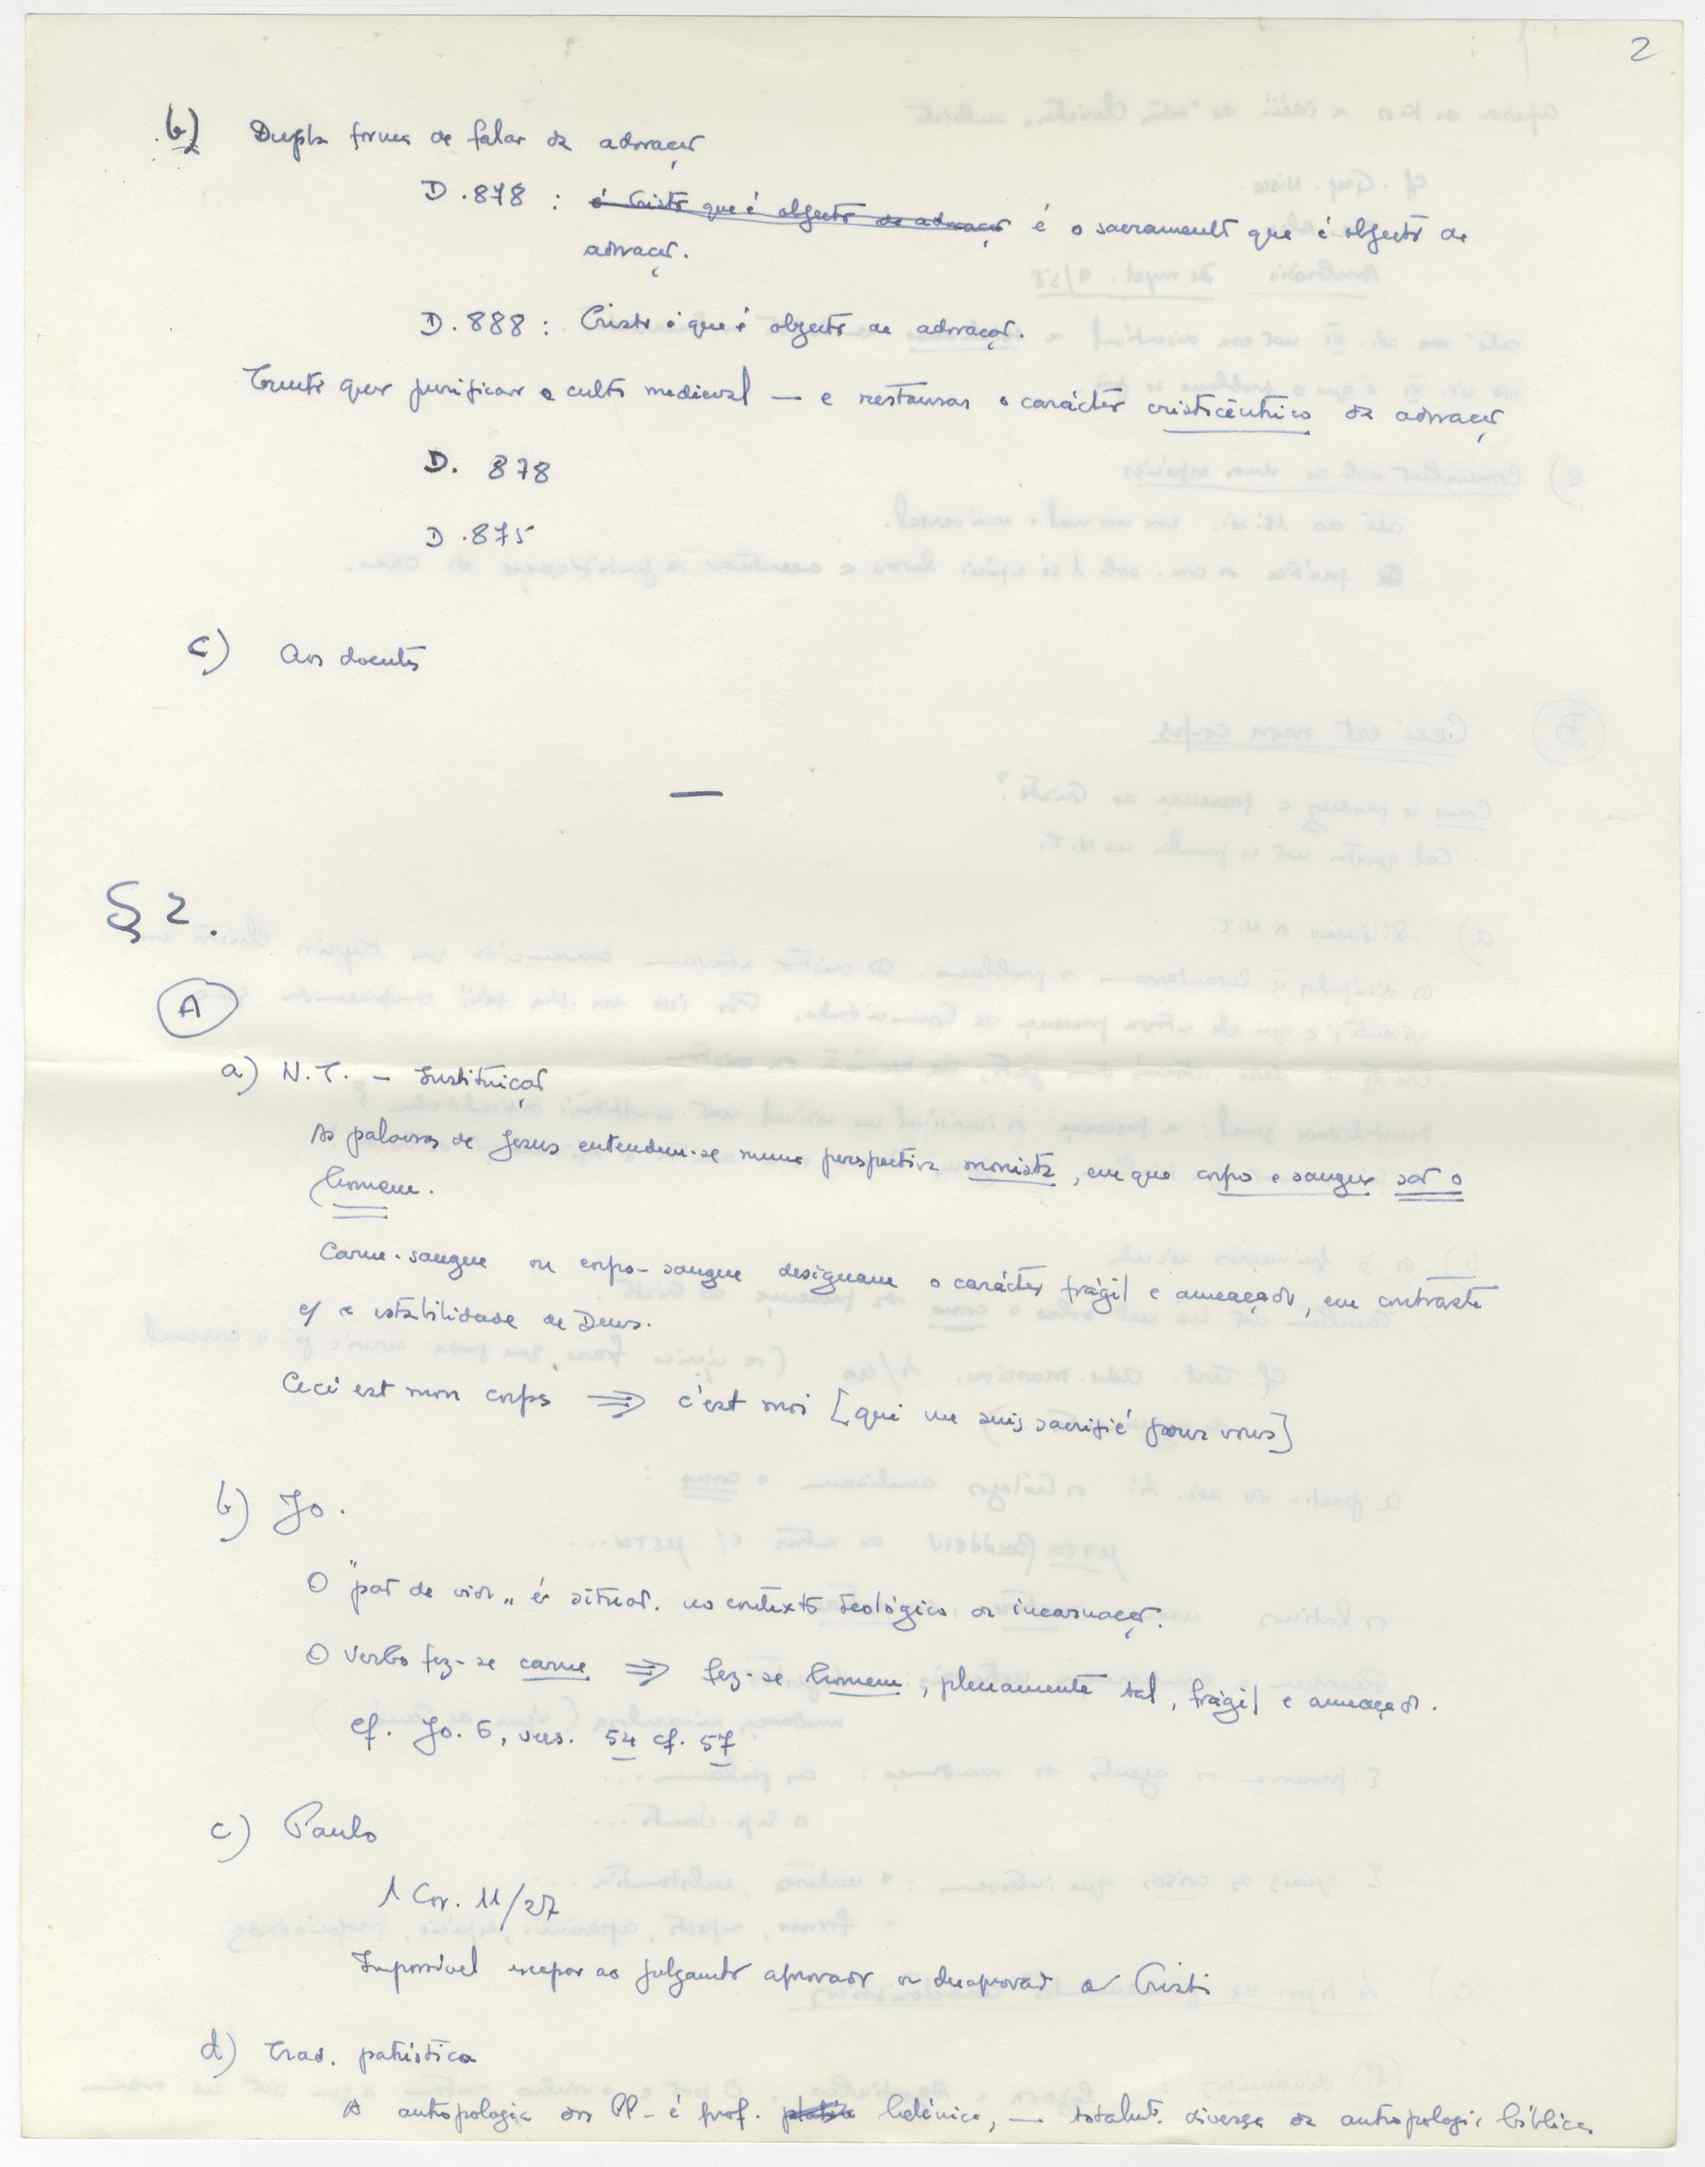 2
b) Dupla forma de falar da adoração
D.878 : é Cristo que é objecto de adoração é o sacramento que é objecto de
adoração.
D.888 : Cristo é que é objecto de adoração.
Trento quer purificar o culto medieval — e restaurar o carácter cristicêntrico da adoração
D. 878
D.875
c) Aos doentes
—
§ 2.
A
a) N.T. – Instituição
As palavras de Jesus entendem-se numa perspectiva monista, em que corpo e sangue são o
homem.
Carne-sangue ou corpo-sangue designam o carácter frágil e ameaçado, em contraste
c/ a estabilidade de Deus.
Ceci est mon corps ⇒ c'est moi [qui me suis sacrifié pour vous]
b) Jo.
O "pão de vida" é situado. no contexto teológico da incarnação.
O Verbo fez-se carne ⇒ fez-se homem, plenamente tal, frágil e ameaçado.
cf. Jo. 6, vers. 54 cf. 57
c) Paulo
1 Cor. 11/27
Impossível escapar ao julgamento aprovador ou desaprovador de Cristo
d) Trad. patrística
A antropologia dos PP. é prof. helénica, — totalmte. diversa da antropologia bíblica